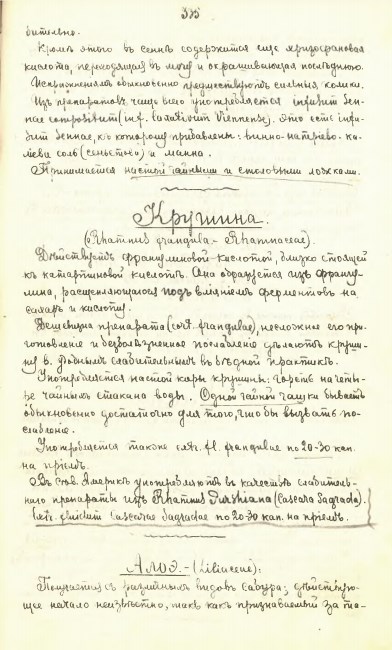 335
бительно.
Кромѣ этого въ сеннѣ содержится еще хризофановая
кислота, переходящая въ мочу и окрашивающая послѣднюю.
Испражненіямъ обыкновенно предшествуютъ сильныя колики.
Изъ препаратовъ чаще всего употребляется infusum Sen-
nae compositum (inf. laxativum Viennense). Это есть infu-
sum sennae, къ которому прибавлены: винно-натріево-ка-
ліева соль (сеньетова) и манна.
Принимается настой чайными и столовыми ложками.
Крушина.
(Rhamnus frangula - Rhamnaceae).
Дѣйствуетъ франгулиновой кислотой, близко стоящей
къ катартиновой кислотѣ. Она образуется изъ франгу-
лина, расщепляющагося подъ вліяніемъ ферментовъ на
сахаръ и кислоту.
Дешевизна препарата (cort. frangulae), несложное его при-
готовленіе и безболѣзненное послабленіе дѣлаютъ круши-
ну удобнымъ слабительнымъ въ бѣдной практикѣ.
Употребляется настой коры крушины: горсть на четы-
ре чайныхъ стакана воды. Одной чайной чашки бываетъ
обыкновенно достаточно для того, что бы вызвать по-
слабленіе.
Употребляется также extr. fl. frangulae по 20-30 кап.
на пріемъ.
Въ Сѣв. Америкѣ употребляютъ въ качествѣ слабитель-
наго препараты изъ Rhamnus Purshiana (Cascara Sagrada).
Extr. fluidum Cascarae Sagradae по 20-30 кап. на пріемъ.
Алоэ. - (Liliaceae):
Получается съ различныхъ видовъ сабура; дѣйствую-
щее начало неизвѣстно, такъ какъ признаваемый за та-